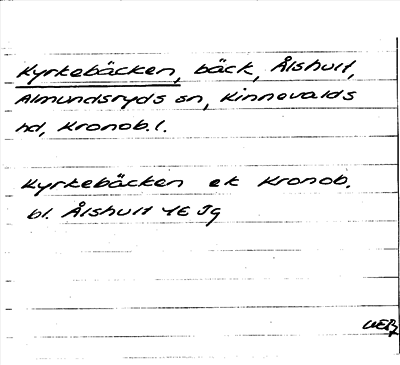 Kyrkebäcken, bäck, Ålshult,
Almundsryds sn, Kinnevalds
hd, Kronob. l.
Kyrkebäcken ek Kronob.
bl. Ålshult 4E Jg